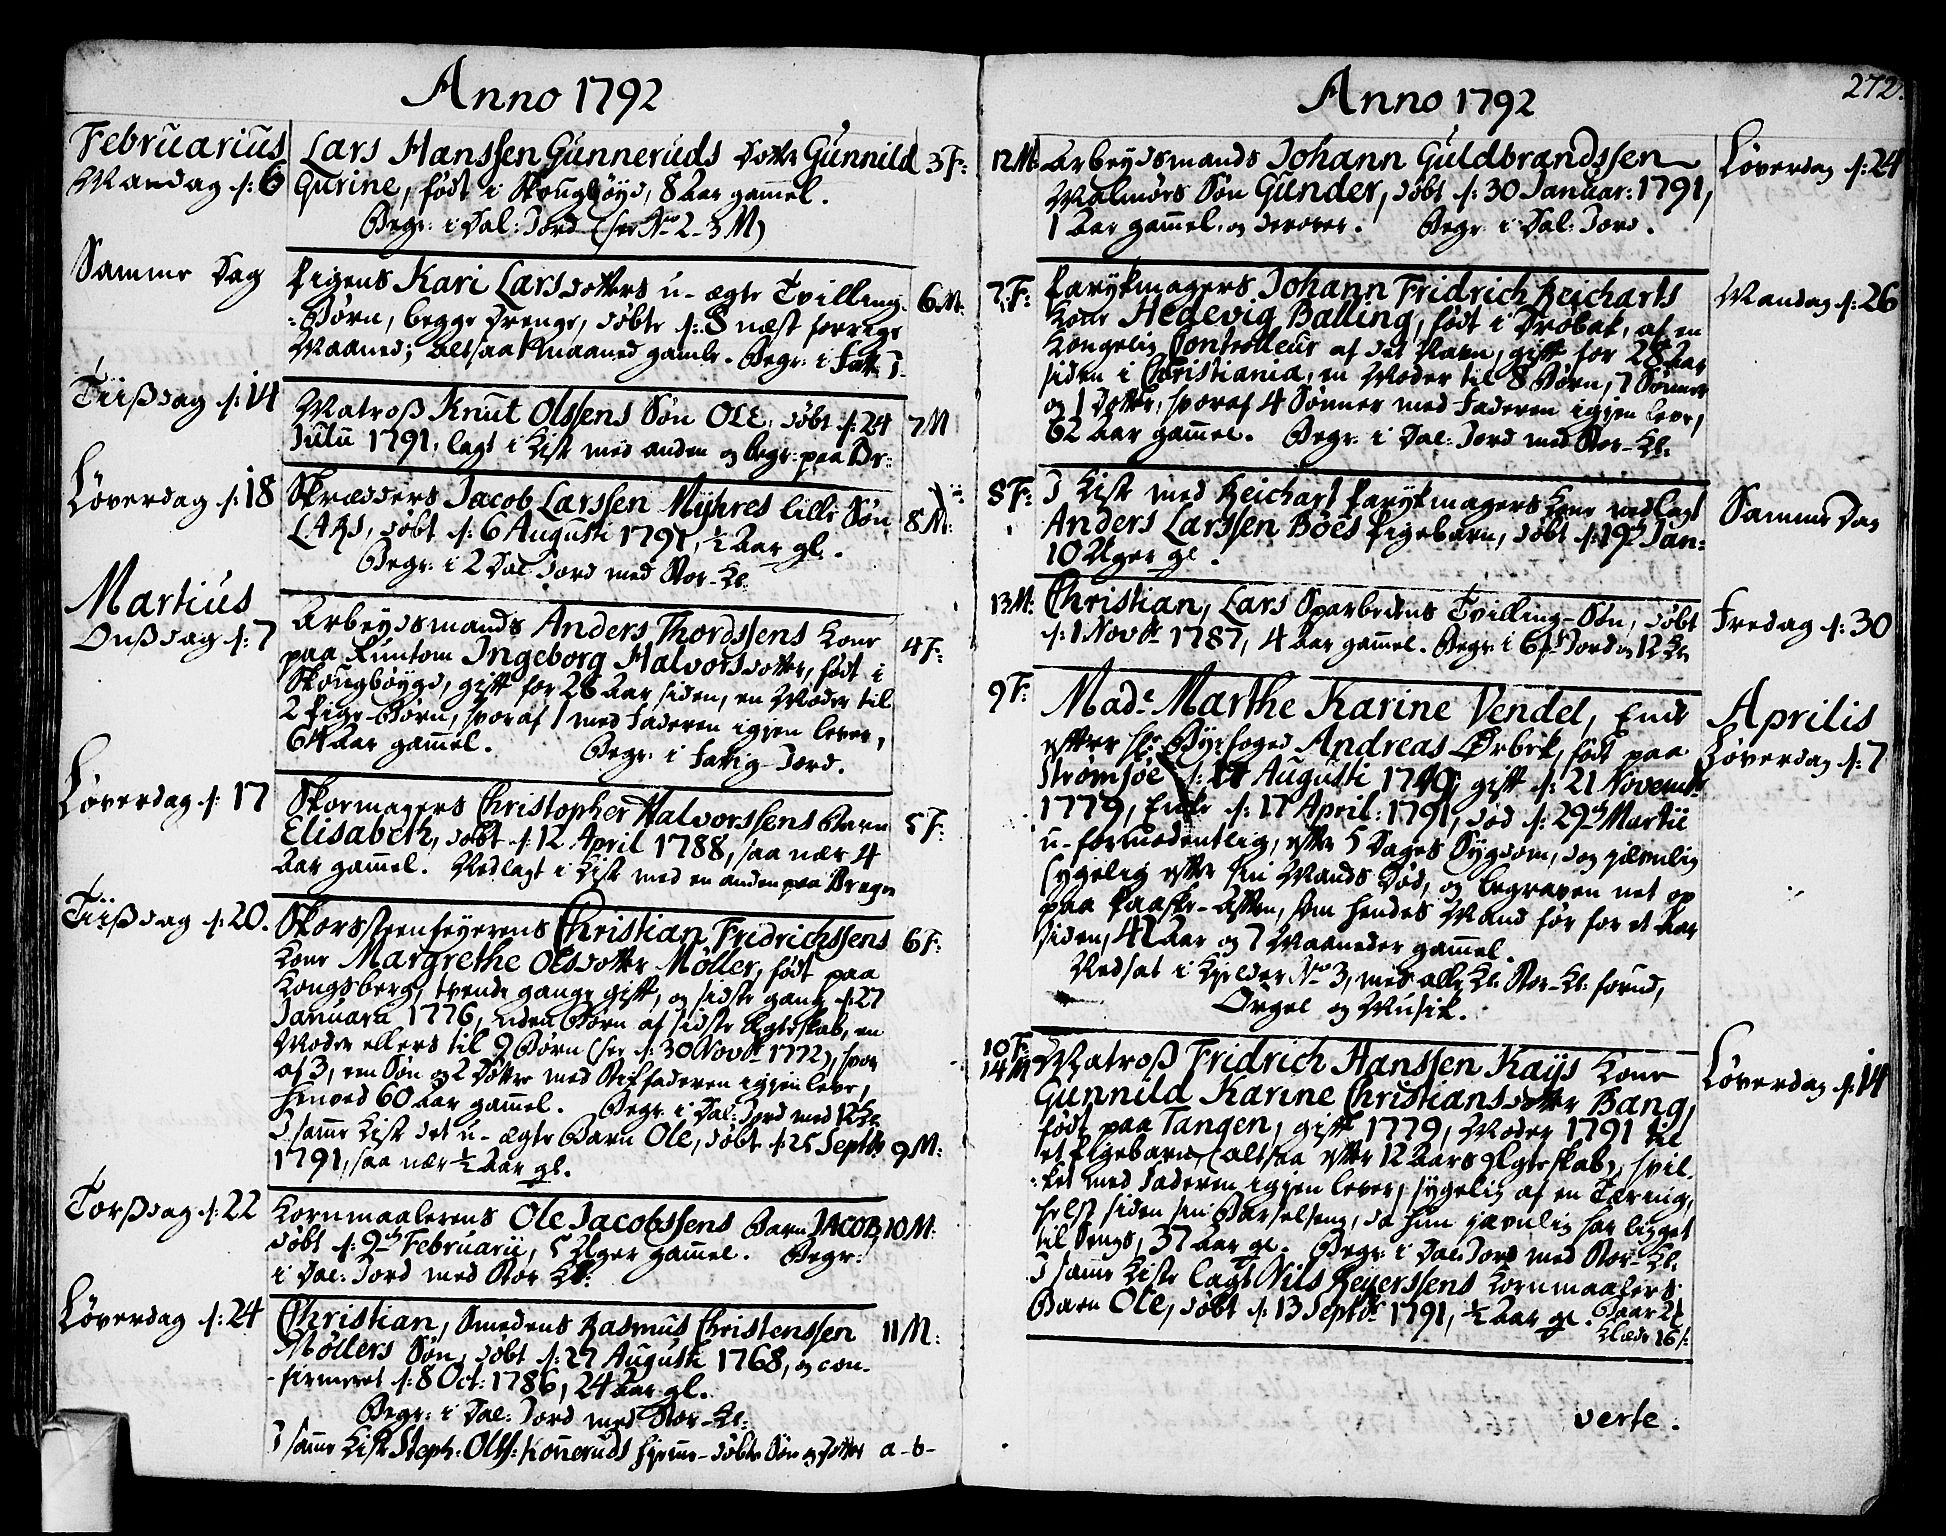 Anno 1792
Februarius
Mandag d: 6
Lars Hanssen Gunneruds Dotter Gunnild 3 F:
Gurine, født i Skougbøyd, 8 Aar gamel.
Begr: i Dal: Jord (see No 2-3 M)
Samme Dag
Pigens Kari Larsdotters u-ægte Tvilling- 6 M:
-Børn, begge Drenge, døbte d: 8 næst forrige
Maaned; altsaa 1 maaned gamle. Begr: i Fatt: J-
Tiisdag d: 14
Matros Knut Olssens Søn OLE, døbt d: 24 7 M
Julii 1791, lagt i Kiste med anden og begr: paa Br:
Løverdag d: 18
Skrædders Jacob Larssen Myhres lille Søn 8 M:
LARS, døbt d: 6 Augusti 1791, ½ Aar gl.
Begr: i 2 Dal Jord med Stor-Kl:
Martius
Onsdag d: 7
Arbeydsmands Anders Thordssens Kone 4 F:
paa Runtom Ingeborg Halvorsdotter, født i
Skougbøygd, gift for 28 Aar siden, en Moder til
2 Pige-Børn, hvoraf 1 med Faderen igjen lever,
64 Aar gamel. Begr: i Fattig-Jord.
Løverdag d: 17
Skomagers Christopher Halvorssens Barn 5 F:
Elisabeth, døbt d: 12 April 1788, saa nær 4
Aar gamel. Nedlagt i Kiste med en anden paa Bragn
Tiisdag d: 20.
Skorsteenfeyerens Christian Fridrichssens 6 F:
Kone Margrethe Olsdotter Møller, født paa
Kongsberg, tvende gange gift, og sidste gang d: 27
Januarii 1776, uden Børn af sidste Ægteskab, en
Moder ellers til 9 Børn (see d: 30 Novbr 1772), hvor
af 3, een Søn og 2 Døttre med Stiffaderen igjen leve,
henved 60 Aar gamel. Begr: i Dal: Jord med 12 Kl.
I same Kiste det u-ægte Barn Ole, døbt d: 25 Septbr 9 M:
1791, saa nær ½ Aar gl.
Torsdag d: 22
Kornmaalerens Ole Jacobssens Barn JACOB, 10 M:
døbt d: 9de Februarii, 5 Uger gamel. Begr:
i Dal: Jord med Stor Kl:
Løverdag d: 24
Christian, Smedens Rasmus Christenssen 11 M:
Møllers Søn, døbt d: 27 Augusti 1768, og con-
-firmeret d: 8 Oct: 1786, 24 Aar gl.
Begr: i Dal: Jord med Stor-Kl:
I same Kiste Steph: Olss: Konneruds hjemme-døbte Søn og Dotter a-b-
Anno 1792
272.
12 M: Arbeydsmands Johann Guldbrandssen Løverdag d: 24
Malmørs Søn Gunder, døbt d: 30 Januar: 1791,
1 Aar gamel, og derover. Begr: i Dal: Jord.
7 F: Parykmagers Johann Fridrich Reicharts Mandag d: 26
Kone Hedevig Balling, født i Drøbak, af en
Kongelig Controlleur af det Navn, gift for 28 Aar
siden i Christiania, en Moder til 8 Børn, 7 Sønner
og 1 Dotter, hvoraf 4 Sønner med Faderen igjen leve,
62 Aar gamel. Begr: i Dal: Jord med Stor-Kl.
8 F: I Kiste med Reichart Parykmagers Kone nedlagt Samme Dag
Anders Larssen Böes Pigebarn, døbt d: 19de Jan:
10 Uger gl.
13 M: Christian, Lars Sparbedens Tvilling-Søn, døbt Fredag d: 30
d: 1 Novbr 1787, 4 Aar gamel. Begr: i 6 ß Jord og 12 Kl.
Aprilis
9 F: Made Marthe Karine Vendel, Enke Løverdag d: 7
efter Hr Byefoged Andreas Ørbek, født paa
Strømsøe d: 17 Augusti 1749; gift d: 21 Novembr
1779, Enke d: 17 April: 1791, død d: 29de Martii
u-formodentlig, efter 5 Dages Sygdom, dog jævnlig
sygelig efter sin Mands Død, og begraven net op
paa Paaske-Aften, som hendes Mand før for et Aar
siden, 42 Aar og 7 Maaneder gamel.
Nedsat i Kjelder No 3, med alle Kl: Stor-Kl: forud,
Orgel og Musik.
10 F: 14 M Matros Fridrich Hanssen Kays Kone Løverdag d: 14
Gunnild Karine Christiansdotter Bang,
født paa Tangen, gift 1779, Moder 1791 til
et Pigebarn, (altsaa efter 12 Aars Ægteskab), hvil-
-ket med Faderen igjen lever, sygelig af en Tæring,
helst siden sin Barselseng, da hun jævnlig har ligget
til Sengs, 37 Aar gl. Begr: i Dal: Jord med Stor-Kl.
I same Kiste lagt Nils Reyerssens Kornmaalers
Barn Ole, døbt d: 13 Septbr 1791, ½ Aar gl.
Klæde 16 ß:
verte.